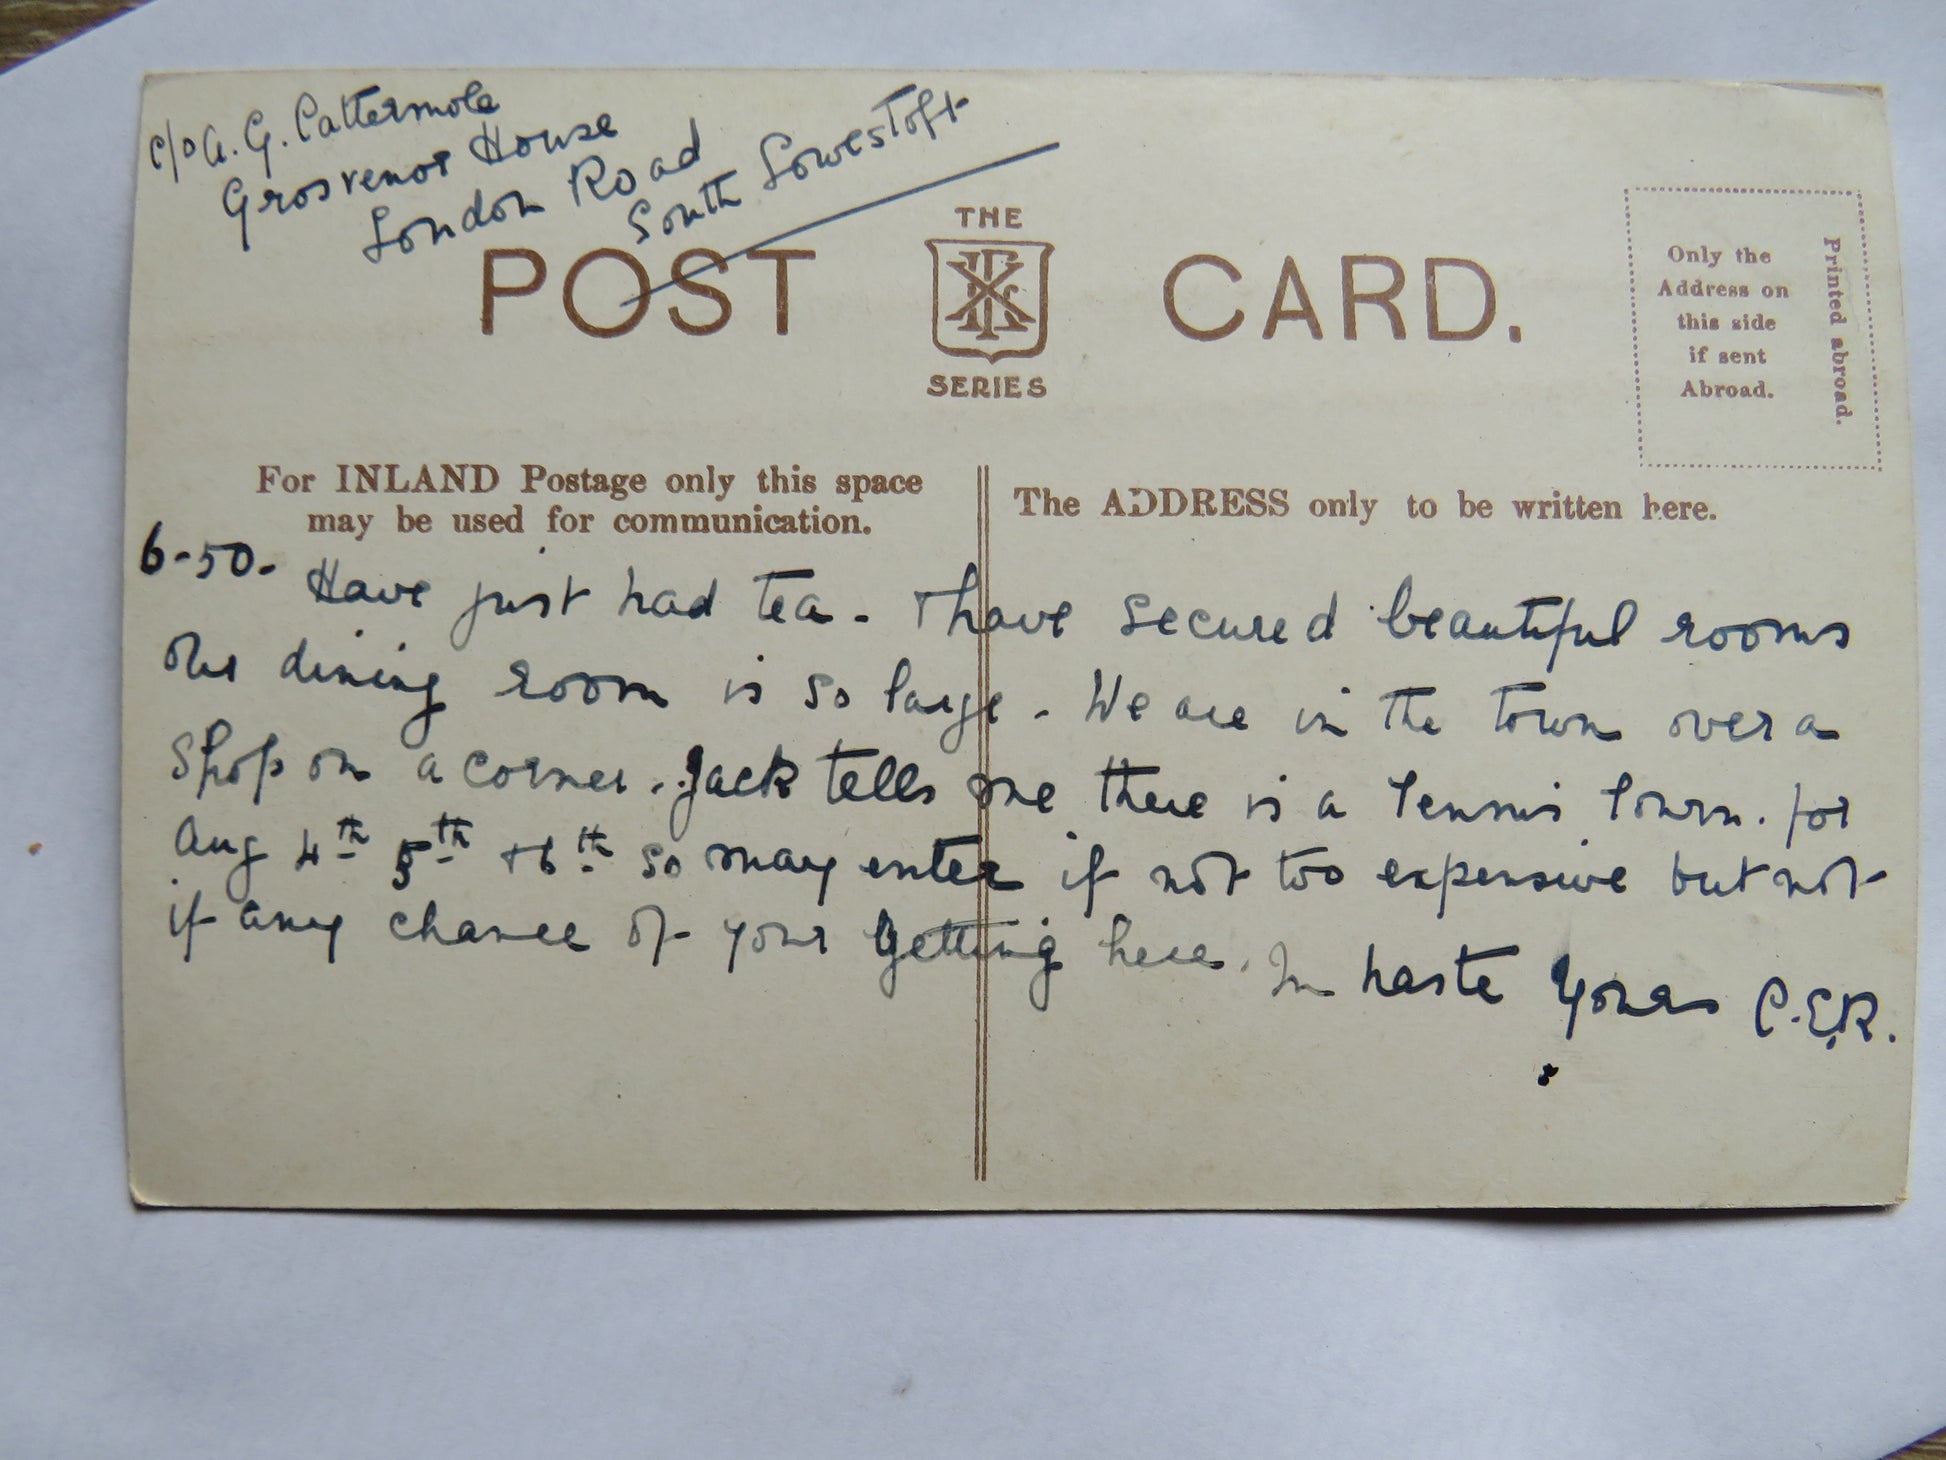 c/o A. G. Cattermole
Grosvenor House
London Road
South Lowestoft
THE
POST CARD.
SERIES
Only the
Address on
this side
if sent
Abroad.
Printed abroad.
For INLAND Postage only this space
may be used for communication.
The ADDRESS only to be written here.
6-50. Have just had tea. I have secured beautiful rooms
our dining room is so large. We are in the town over a
shop on a corner. Jack tells me there is a Tennis Tourn. for
Aug 4th 5th + 6th so may enter if not too expensive but not
if any chance of your getting here. In haste Yours C.E.R.